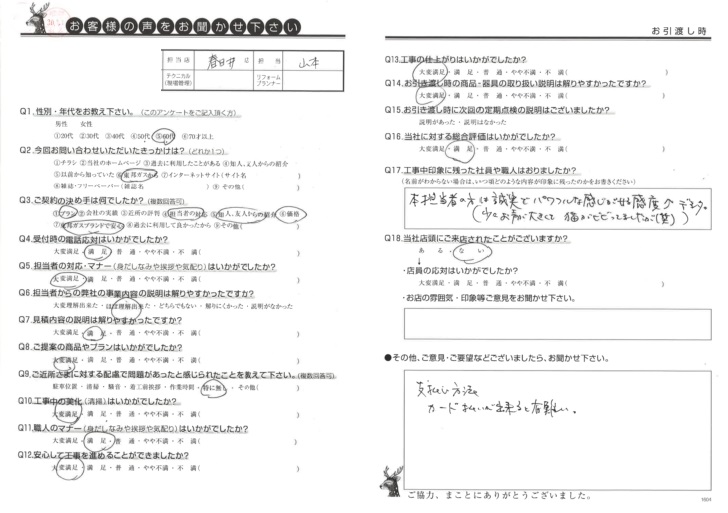 お客様の声をお聞かせ下さい
担当店 春日井店 担当 山本
テクニカル(現場管理) リフォームプランナー
Q1.性別・年代をお教え下さい。(このアンケートをご記入頂く方)
男性 女性
①20代 ②30代 ③40代 ④50代 ⑤60代 ⑥70才以上
Q2.今回お問い合わせいただいたきっかけは?(どれか1つ)
①チラシ ②会社のホームページ ③過去に利用したことがある ④知人、友人からの紹介
⑤以前から知っていた ⑥東邦ガスから ⑦インターネットサイト(サイト名 )
⑧雑誌・フリーペーパー(雑誌名 ) ⑨その他( )
Q3.ご契約の決め手は何でしたか?(複数回答可)
①プラン ②会社の実績 ③近所の評判 ④担当者の対応 ⑤知人、友人からの紹介 ⑥価格
⑦東邦ガスブランドで安心 ⑧過去に利用して良かったから ⑨その他( )
Q4.受付時の電話応対はいかがでしたか?
大変満足・満 足・普 通・やや不満・不 満( )
Q5.担当者の対応・マナー(身だしなみや挨拶や気配り)はいかがでしたか?
大変満足・満 足・普 通・やや不満・不 満( )
Q6.担当者からの弊社の事業内容の説明は解りやすかったですか?
大変理解出来た・ほぼ理解出来た・どちらでもない・解りにくかった・説明がなかった
Q7.見積内容の説明は解りやすかったですか?
大変満足・満 足・普 通・やや不満・不 満( )
Q8.ご提案の商品やプランはいかがでしたか?
大変満足・満 足・普 通・やや不満・不 満( )
Q9.ご近所さまに対する配慮で問題があったと感じられたことを教えて下さい。(複数回答可)
駐車位置・清掃・騒音・着工前挨拶・作業時間・特に無し・その他( )
Q10.工事中の美化(清掃)はいかがでしたか?
大変満足・満 足・普 通・やや不満・不 満( )
Q11.職人のマナー(身だしなみや挨拶や気配り)はいかがでしたか?
大変満足・満 足・普 通・やや不満・不 満( )
Q12.安心して工事を進めることができましたか?
大変満足・満 足・普 通・やや不満・不 満( )
お引渡し時
Q13.工事の仕上がりはいかがでしたか?
大変満足・満 足・普 通・やや不満・不 満( )
Q14.お引き渡し時の商品・器具の取り扱い説明は解りやすかったですか?
大変満足・満 足・普 通・やや不満・不 満( )
Q15.お引き渡し時に次回の定期点検の説明はございましたか?
説明があった・説明はなかった
Q16.当社に対する総合評価はいかがでしたか?
大変満足・満 足・普 通・やや不満・不 満( )
Q17.工事中印象に残った社員や職人はおりましたか?
(名前がわからない場合は、いつ頃どのような内容が印象に残ったのかをお書きください)
本担当者の方は誠実とパワフルな感じをさせる態度がデータ。
(少しお声が大きくて猫がビビってましたが(笑))
Q18.当社店頭にご来店されたことがございますか?
ある・ない
↓
・店員の応対はいかがでしたか?
大変満足・満 足・普 通・やや不満・不 満( )
・お店の雰囲気・印象等ご意見をお聞かせ下さい。
●その他、ご意見・ご要望などございましたら、お聞かせ下さい。
支払い方法に
カード払いが出来ると有難い。
ご協力、まことにありがとうございました。
1604